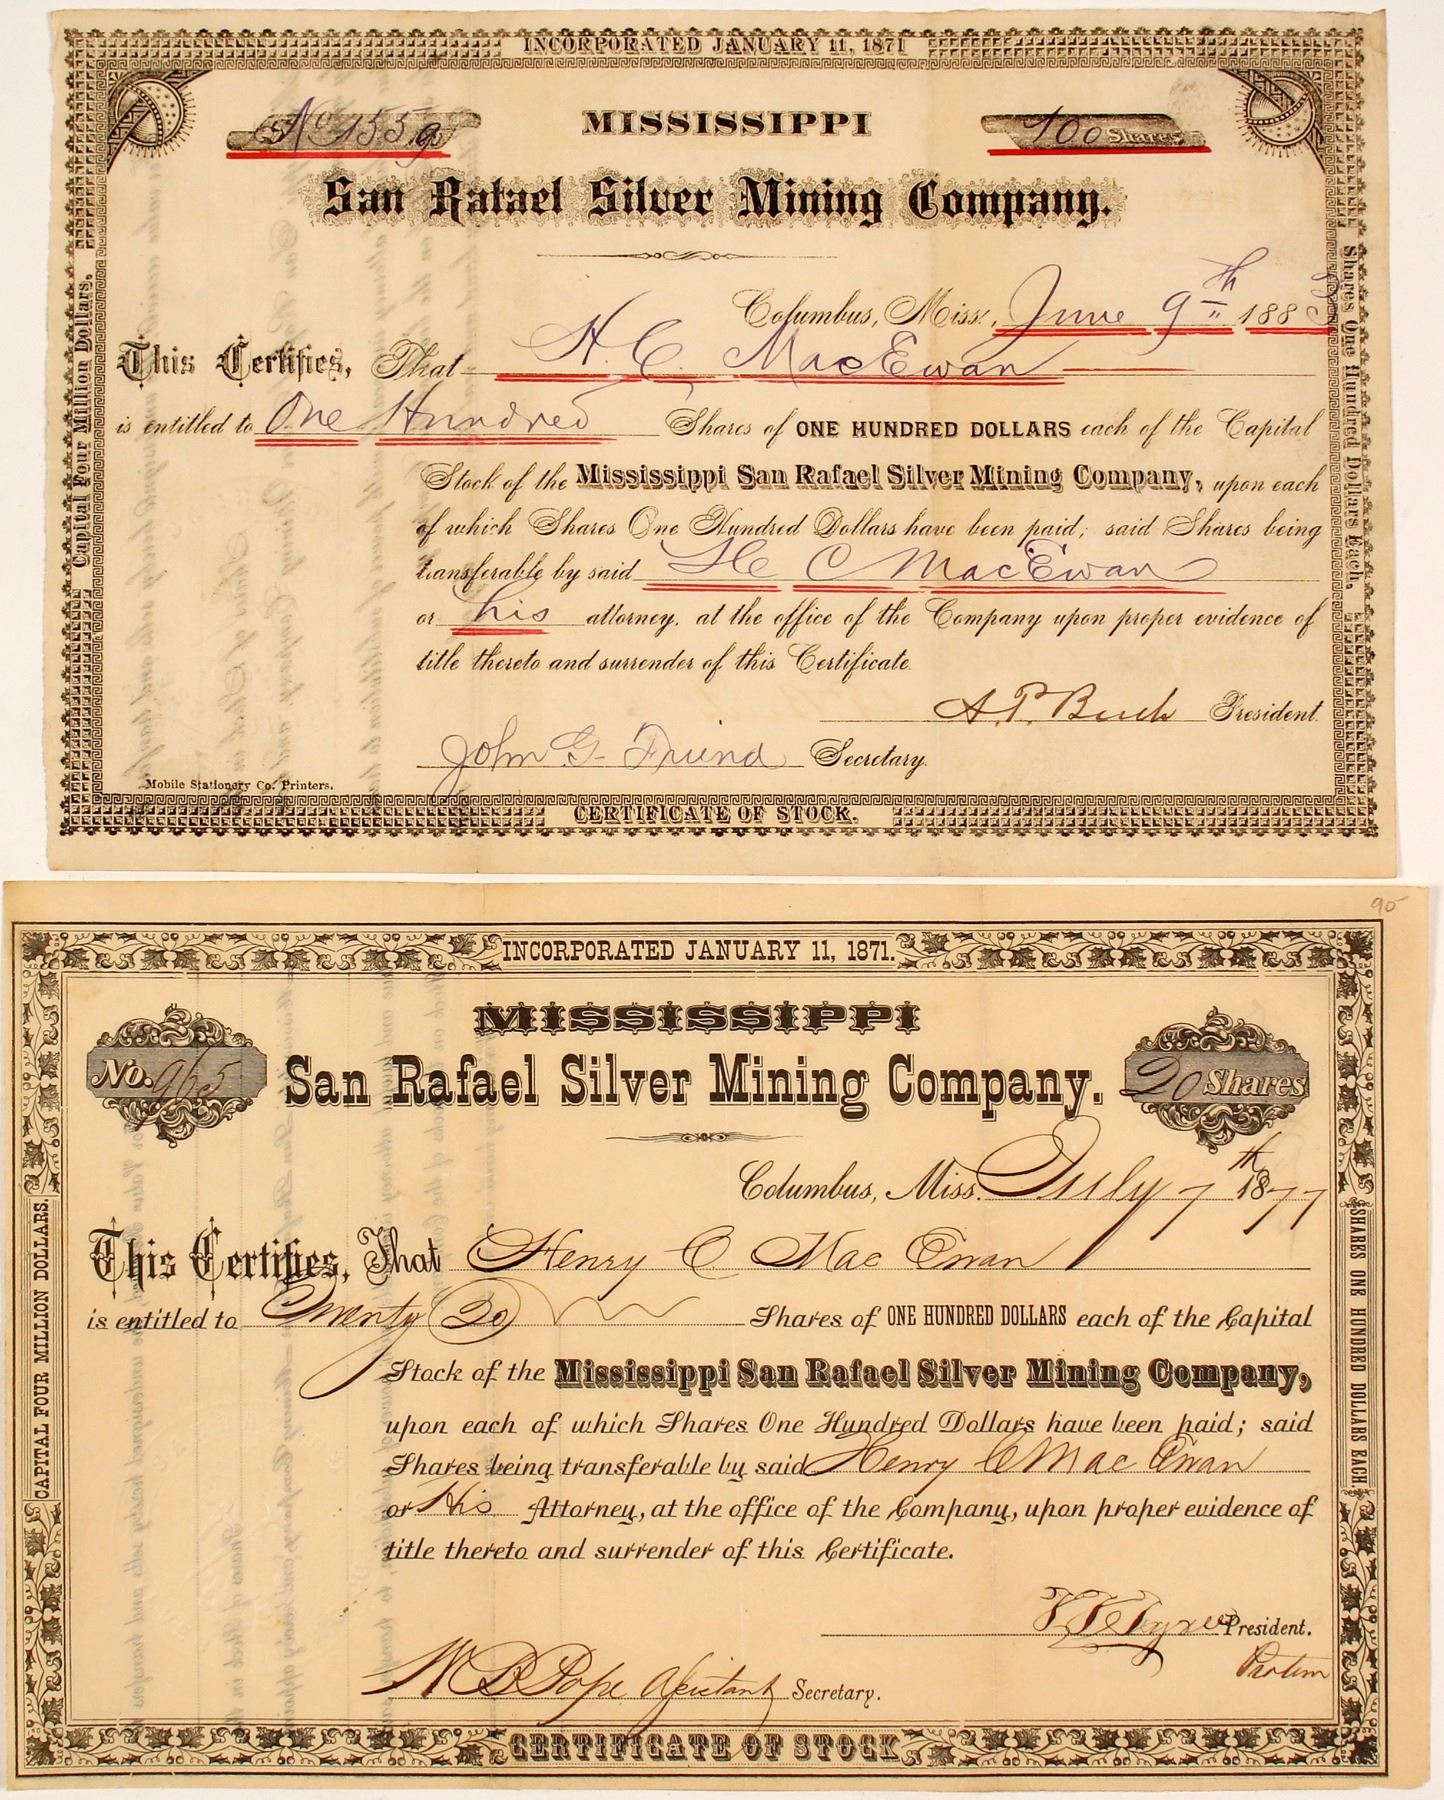 INCORPORATED JANUARY 11, 1871
No 1559
MISSISSIPPI
100 Shares.
San Rafael Silver Mining Company.
Columbus, Miss., June 9th 1883
This Certifies, That H. C. MacEwan
is entitled to One Hundred Shares of ONE HUNDRED DOLLARS each of the Capital
Stock of the Mississippi San Rafael Silver Mining Company, upon each
of which Shares One Hundred Dollars have been paid; said Shares being
transferable by said H C MacEwan
or his attorney, at the office of the Company upon proper evidence of
title thereto and surrender of this Certificate.
A. P. Bush President.
John G. Friend Secretary.
Mobile Stationery Co. Printers.
CERTIFICATE OF STOCK.
Capital Four Million Dollars.
Shares One Hundred Dollars Each.
90
INCORPORATED JANUARY 11, 1871.
MISSISSIPPI
No. 965
San Rafael Silver Mining Company.
20 Shares
Columbus, Miss. July 7th 1877
This Certifies, That Henry C Mac Ewan
is entitled to Twenty (20) Shares of ONE HUNDRED DOLLARS each of the Capital
Stock of the Mississippi San Rafael Silver Mining Company,
upon each of which Shares One Hundred Dollars have been paid; said
Shares being transferable by said Henry C Mac Ewan
or His Attorney, at the office of the Company, upon proper evidence of
title thereto and surrender of this Certificate.
President.
Protem
W B Pope Assistant Secretary.
CERTIFICATE OF STOCK
CAPITAL FOUR MILLION DOLLARS.
SHARES ONE HUNDRED DOLLARS EACH.